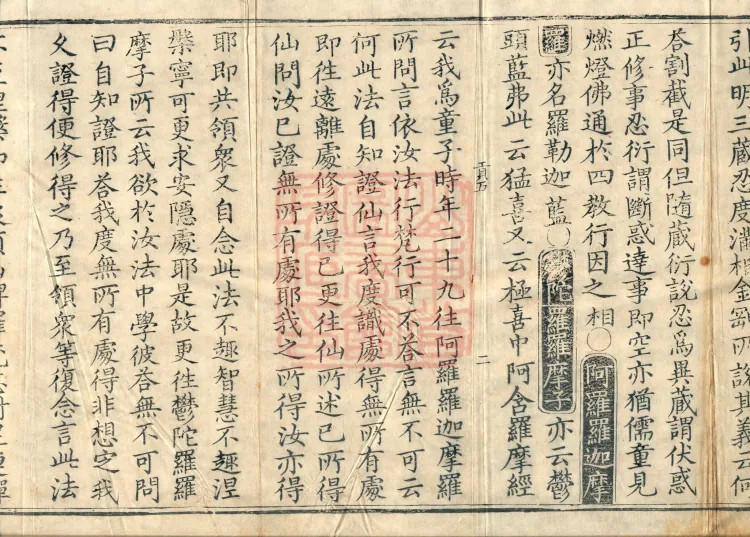 引此明三藏忍度滿相金剛所論其義云何
荅割截是同但隨藏衍說忍爲異藏謂伏惑
正修事忍衍謂斷惑達事即空亦猶儒童見
燃燈佛通於四教行因之相○阿羅羅迦摩
羅亦名羅勒迦藍○欝陀羅羅摩子亦云欝
頭藍弗此云猛喜又云極喜中阿含羅摩經
頁五 二
云我爲童子時年二十九往阿羅羅迦摩羅
所問言依汝法行梵行可不荅言無不可云
何此法自知證仙言我度識處得無所有處
即往遠離處修證得已更往仙所述已所得
仙問汝已證無所有處耶我之所得汝亦得
耶即共領衆又自念此法不趣智慧不趣涅
槃寧可更求安隱處耶是故更往欝陀羅羅
摩子所云我欲於汝法中學彼荅無不可問
曰自知證耶荅我度無所有處得非想定我
久證得便修得之乃至領衆等復念言此法